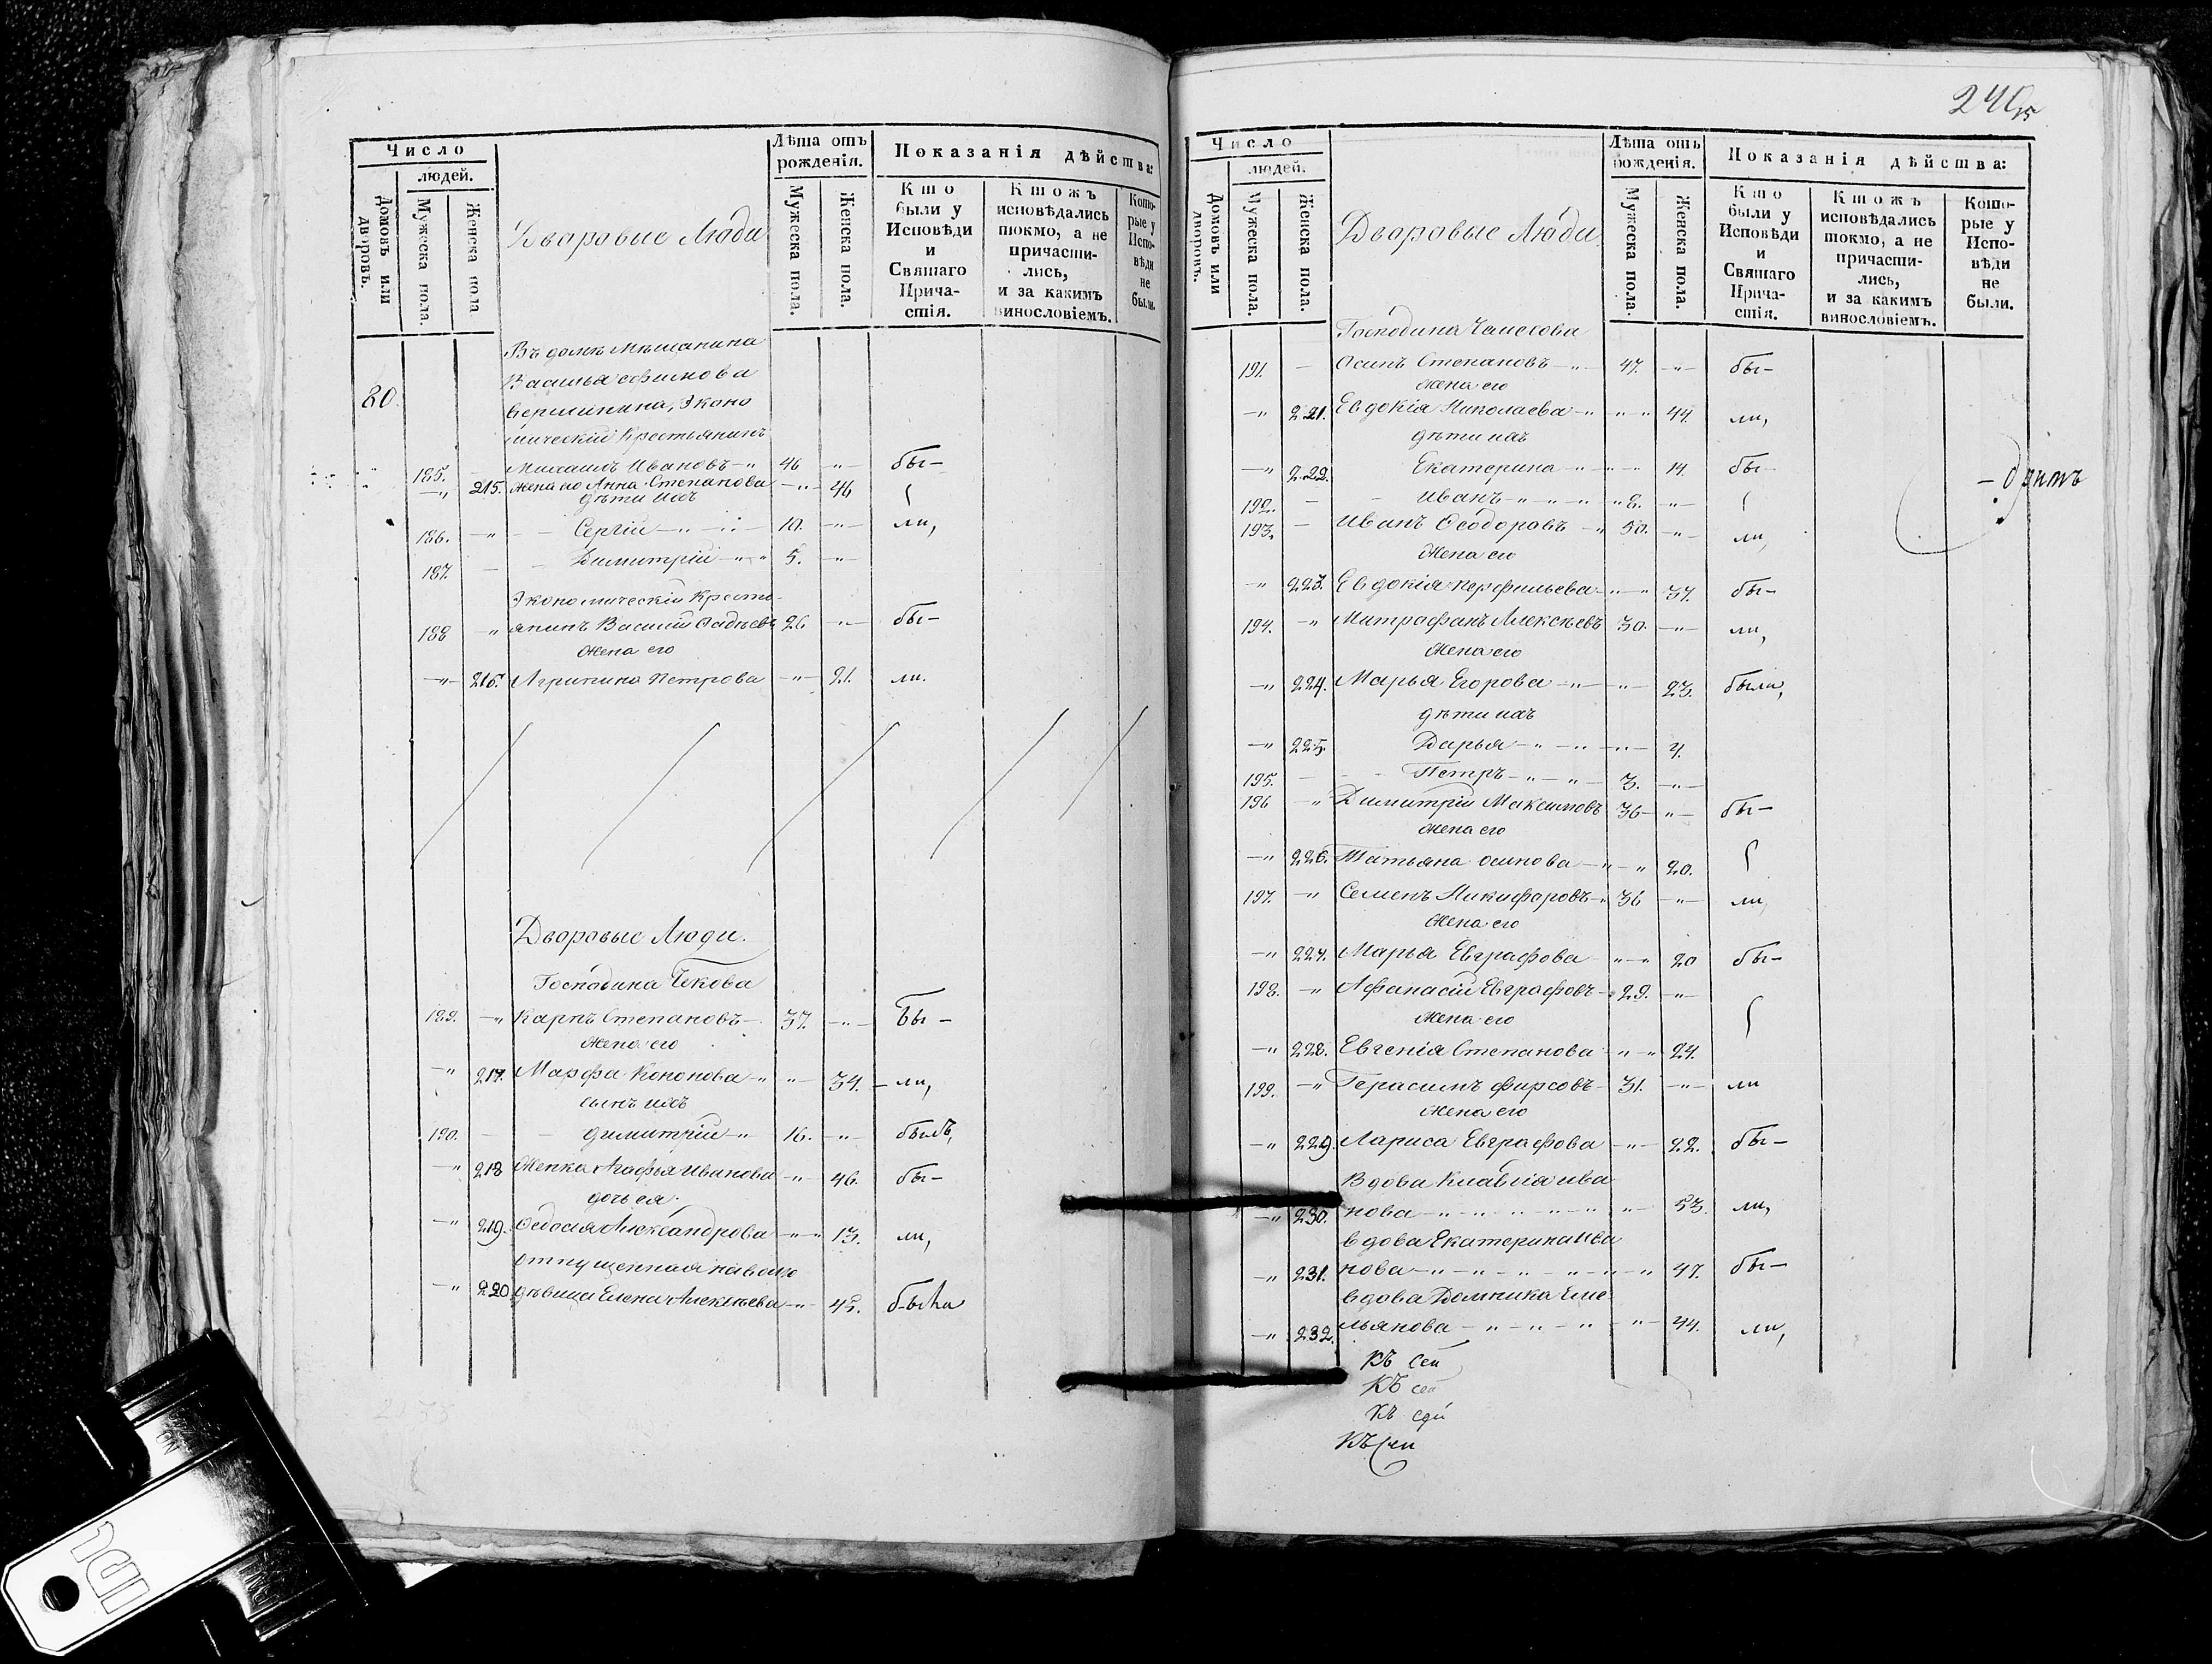 Число
людей.
Домовъ или дворовъ.
Мужеска пола.
Женска пола
Дворовые Люди
Лѣта отъ рожденія.
Мужеска пола.
Женска пола.
Показанія дѣйства:
Кто были у Исповѣди и Святаго Прича-стія.
Ктожъ исповѣдались токмо, а не причасти-лись, и за какимъ винословіемъ.
Кото-рые у Испо-вѣди не были.
Въ домѣ Мѣщанина
20. Василья
Эконо
мическій Крестьянинъ
185. Михаилъ Ивановъ 46 бы-
215. Жена его Анна Степанова 46
дѣти ихъ
186. Сергій 10. ли,
187. Димитрій 5.
Экономическій Кресть-
188 янинъ Василій Фадѣевъ 26 бы-
Жена его
216. Агрипина Петрова 21. ли.
Дворовые Люди.
Господина Чекова
189. Карпъ Степановъ 37. Бы-
Жена его
217. Марфа Кононова 34. ли,
сынъ ихъ
190. Димитрій 16. былъ,
218 Женка Агафья Иванова 46. бы-
дочь ея
219. Ѳедосія Александрова 13. ли,
отпущенная наволю
220 дѣвица Елена Алексѣева 45. была
246
Число
людей.
Домовъ или дворовъ.
Мужеска пола.
Женска пола.
Дворовые Люди.
Лѣта отъ рожденія.
Мужеска пола
Женска пола.
Показанія дѣйства:
Кто были у Исповѣди и Святаго Прича-стія.
Ктожъ исповѣдались токмо, а не причасти-лись, и за какимъ винословіемъ.
Кото-рые у Испо-вѣди не были.
Господина
191. Осипъ Степановъ 47. бы-
Жена его
221. Евдокія Николаева 44. ли,
дѣти ихъ
222. Екатерина 14. бы-
192. Иванъ 8.
193. Иванъ Ѳеодоровъ 50. ли,
Жена его
223. Евдокія Перфильева 37. бы-
194. Митрафанъ Алексѣевъ 30. ли,
Жена его
224. Марья Егорова 23. были,
дѣти ихъ
225. Дарья 4.
195. Петръ 3.
196 Димитрій Максимовъ 36 бы-
Жена его
226. Татьяна Осипова 20.
197. Семенъ Никифаровъ 36 ли,
Жена его
227. Марья Евграфова 20 бы-
198. Афанасій Евграфовъ 29.
Жена его
228. Евгенія Степанова 24.
199. Герасимъ Фирсовъ 31. ли
Жена его
229. Лариса Евграфова 22. бы-
Вдова Клавдія Ива
230. нова 53. ли,
вдова Екатерина Ива
231. нова 47. бы-
вдова Домника Еме
232. льянова 44. ли,
Къ сей
Къ сей
Къ сей
Къ сей